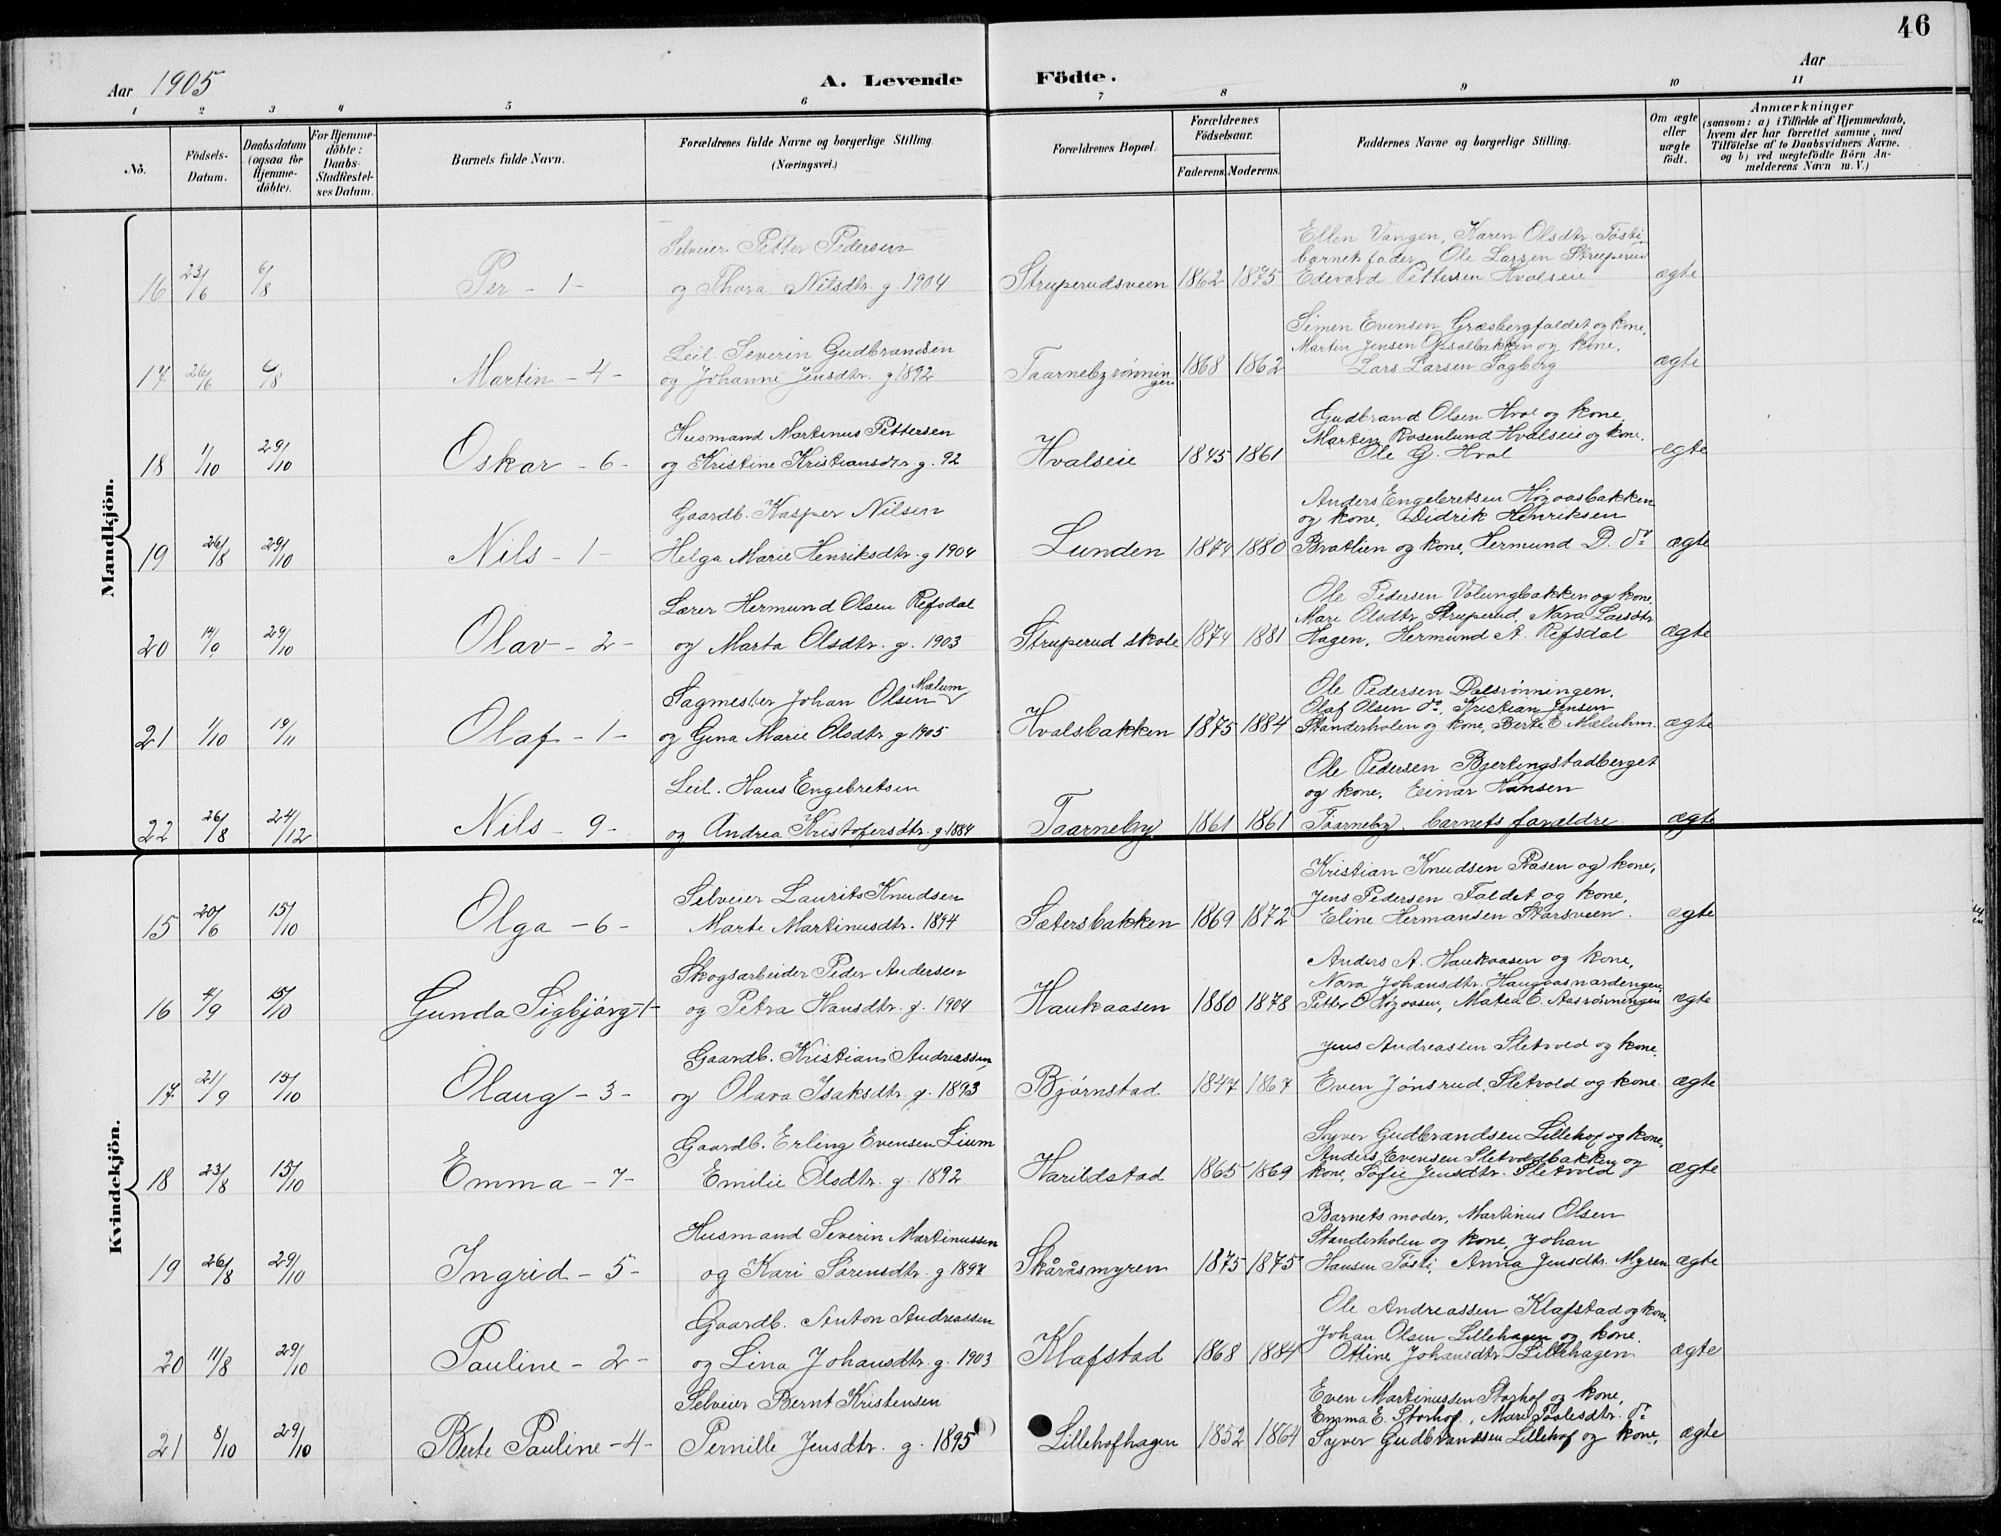 46
Aar 1905
A. Levende Födte.
Aar
1 2 3 4 5 6 7 8 9 10 11
No.
Födsels-Datum.
Daabsdatum (ogsaa for Hjemme-döbte).
For Hjemme-döbte: Daabs-Stadfæstel-ses Datum.
Barnets fulde Navn.
Forældrenes fulde Navne og borgerlige Stilling. (Næringsvei.)
Forældrenes Bopæl.
Forældrenes Födselsaar.
Faderens. Moderens.
Faddernes Navne og borgerlige Stilling.
Om ægte eller uægte födt.
Anmærkninger
(saasom: a) i Tilfælde af Hjemmedaab,
hvem der har forrettet samme, med
Tilföielse af to Daabsvidners Navne.
og b) ved uægtefödte Börn An-
melderens Navn m. V.)
Mandkjön.
Selveier Petter Pedersen
Ellen Vangen, Karen Olsdtr. Tosti,
barnets fader, Ole Larsen Struperud
16 23/6 6/8 Per - 1 - og Thora Nilsdtr. g. 1904 Struperudsveen 1862 1875 Edevard Pettersen Hvalseie ægte
Simen Evensen Græsbergfaldet og kone,
Leil. Severin Gudbrandsen
Martin Jensen Opsalbakken og kone,
17 26/6 6/8 Martin - 4 - og Johanne Jensdtr. g 1892 Taarnebyrønningen 1868 1862 Lars Larsen Fagberg ægte
Gudbrand Olsen Hval og kone,
Husmand Martinus Pettersen
Martin Rosenlund Hvalseie og kone,
18 1/10 29/10 Oskar - 6 - og Kristine Kristiansdtr. g. 92 Hvalseie 1845 1861 Ole G. Hval ægte
Anders Engebretsen Høgaasbakken
Gaardb. Kasper Nilsen
og kone, Didrik Henriksen
19 26/8 29/10 Nils - 1 - Helga Marie Henriksdtr. g 1904 Lunden 1874 1880 Bratlien og kone, Hermund D. do ægte
Ole Pedersen Volungbakken og kone,
Lærer Hermund Olsen Refsdal
Mari Olsdtr. Struperud, Nara Larsdtr.
20 14/9 29/10 Olav - 2 - og Marta Olsdtr. g. 1903 Struperud skole 1874 1881 Hagen, Hermund A. Refsdal ægte
Ole Pedersen Dalsrønningen,
Sagmester Johan Olsen Mælum
Olaf Olsen do, Kristian Jensen
21 1/10 19/11 Olaf - 1 - og Gina Marie Olsdtr. g 1905 Hvalsbakken 1875 1884 Standerholen og kone, Berte E. Mæluhm. ægte
Ole Pedersen Bjertingstadberget
Leil. Hans Engebretsen
og kone, Einar Hansen
22 26/8 24/12 Nils - 9 - og Andrea Kristofersdtr. g. 1884 Taarneby 1861 1861 Taarneby, barnets forældre ægte
Kvindekjön.
Kristian Knudsen Aasen og kone,
Selveier Laurits Knudsen
Jens Pedersen Faldet og kone,
15 20/6 15/10 Olga - 6 - Marte Martinusdtr. 1894 Sætersbakken 1869 1872 Eline Hermansen Starsveen. ægte
Anders A. Haukaasen og kone,
Skogsarbeider Peder Andersen
Nara Johansdtr. Haugaasnardengen,
16 4/9 15/10 Gunda Sigbjørg - 1 og Petra Hansdtr. g. 1904 Haukaasen 1880 1878 Petter O Høgaasen, Matea E. Aasrønningen ægte
Gaardb. Kristian Andreassen
Jens Andreassen Sletvold og kone,
17 21/9 15/10 Olaug - 3 - og Olava Isaksdtr. g. 1893 Bjørnstad 1847 1867 Even Jønsrud Sletvold og kone ægte
Syver Gudbrandsen Lillehof og kone,
Gaardb. Erling Evensen Lium
Anders Evensen Sletvoldbakken og
18 23/8 15/10 Emma - 7 - Emilie Olsdtr. g. 1892 Harildstad 1865 1869 kone, Sofie Jensdtr. Sletvold ægte
Barnets moder, Martinus Olsen
Husmand Severin Martinussen
Standerholen og kone, Johan
19 26/8 29/10 Ingrid - 5 - og Kari Sørensdtr. g 1897 Skåråsmyren 1875 1875 Hansen Tosti, Anna Jensdtr. Myren ægte
Ole Andreassen Klafstad og kone,
Gaardb. Anton Andreassen
Johan Olsen Lillehagen og kone,
20 11/8 29/10 Pauline - 2 - og Lina Johansdtr. g. 1903 Klafstad 1868 1884 Otline Johansdtr. Lillehagen ægte
Even Martinussen Storhof og kone,
Selveier Bernt Kristensen
Emma E. Storhof, Mari Paalesdtr. do
21 8/10 29/10 Berte Pauline - 4 - Pernille Jensdtr. g. 1895 Lillehofhagen 1852 1864 Syver Gudbrandsen Lillehof og kone, ægte